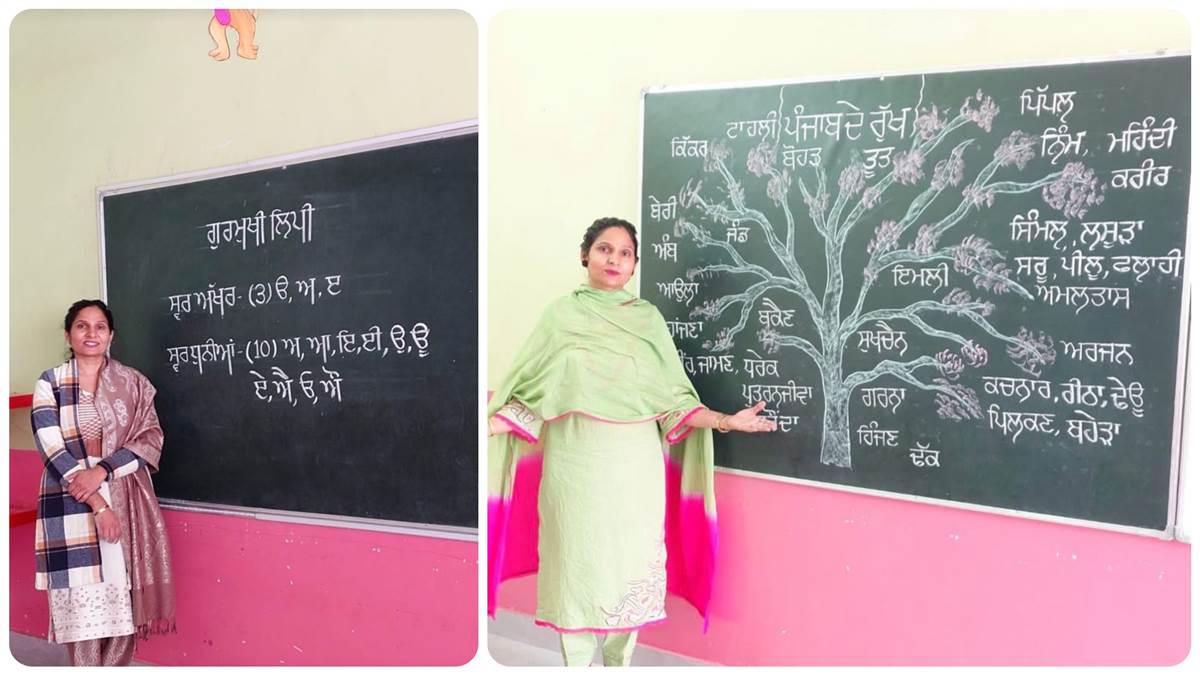 ਗੁਰਮੁਖੀ ਲਿਪੀ
ਸ੍ਵਰ ਅੱਖਰ - (3) ੳ, ਅ, ੲ
ਸ੍ਵਰ ਧੁਨੀਆਂ - (10) ਅ, ਆ, ਇ, ਈ, ਉ, ਊ
ਏ, ਐ, ਓ, ਔ
ਪੰਜਾਬ ਦੇ ਰੁੱਖ
ਟਾਹਲੀ
ਕਿੱਕਰ
ਬੋਹੜ
ਤੂਤ
ਪਿੱਪਲ
ਨਿੰਮ, ਮਹਿੰਦੀ
ਕਰੀਰ
ਬੇਰੀ
ਜੰਡ
ਅੰਬ
ਸਿੰਮਲ, ਲਸੂੜਾ
ਸਰੂ, ਪੀਲੂ, ਫਲਾਹੀ
ਅਮਲਤਾਸ
ਇਮਲੀ
ਆਉਲਾ
ਬਕੈਣ
ਸੁਖਚੈਨ
ਅਰਜਨ
ਜਾਮਣ, ਧਰੇਕ
ਪੁਤਰਨਜੀਵਾ
ਗਰਨਾ
ਕਚਨਾਰ, ਰੀਠਾ, ਢੇਊ
ਪਿਲਕਣ, ਬਹੇੜਾ
ਹਿੰਜਣ
ਢੱਕ